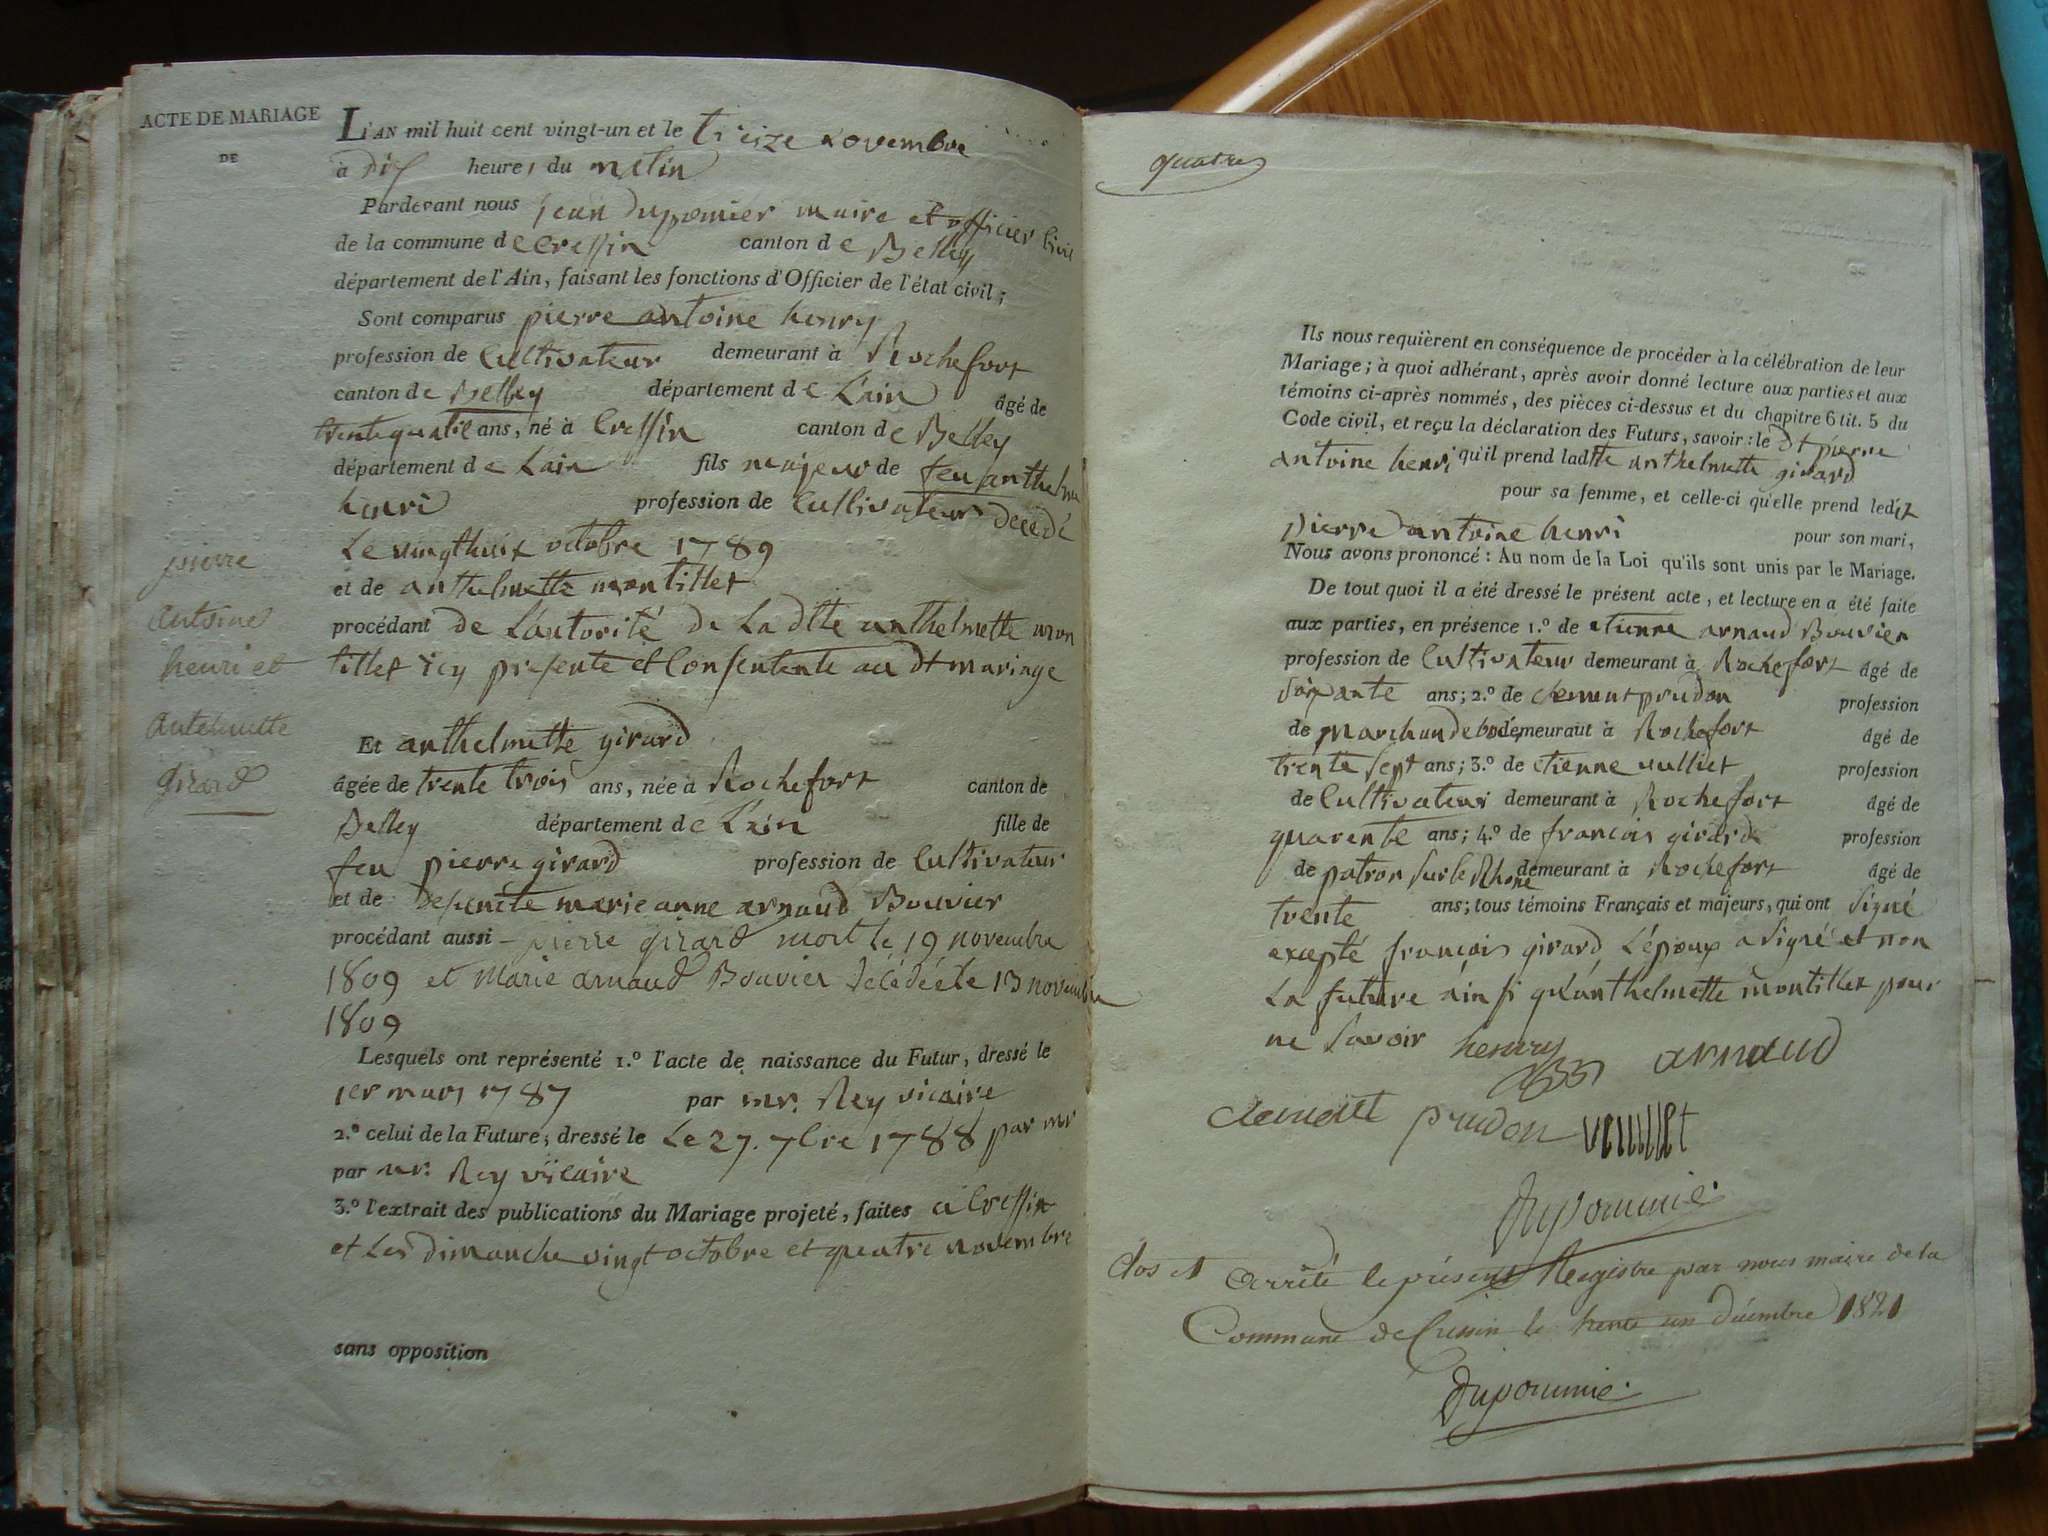 ACTE DE MARIAGE
DE
pierre
antoine
henri et
antelmette
girard
L'AN mil huit cent vingt-un et le treize novembre
à Dix heures du matin
Pardevant nous jean duponier maire et officier civil
de la commune de Cressin canton de Belley
département de l'Ain, faisant les fonctions d'Officier de l'état civil;
Sont comparus pierre antoine henry
profession de Cultivateur demeurant à Rochefort
canton de Belley département de L'ain âgé de
trente quatre ans, né à Cressin canton de Belley
département de L'ain fils majeur de feu anthelme
henri profession de Cultivateur décédé
Le vingthuit octobre 1789
et de anthelmette montillet
procédant de L'autorité de La dite anthelmette mon
tillet icy presente et Consentente au dt mariage
Et anthelmette girard
âgée de trente trois ans, née à Rochefort canton de
Belley département de L'ain fille de
feu pierre girard profession de Cultivateur
et de marie anne arnaud Bouvier
procédant aussi - pierre girard mort le 19 novembre
1809 et Marie arnaud Bouvier décédée le 13 novembre
1809
Lesquels ont représenté 1.º l'acte de naissance du Futur, dressé le
1er mars 1787 par mr. Rey vicaire
2.º celui de la Future, dressé le Le 27. 7bre 1788 par mr
par mr. Rey vicaire
3.º l'extrait des publications du Mariage projeté, faites à Cressin
et Les dimanche vingt octobre et quatre novembre
sans opposition
quatre
Ils nous requièrent en conséquence de procéder à la célébration de leur
Mariage; à quoi adhérant, après avoir donné lecture aux parties et aux
témoins ci-après nommés, des pièces ci-dessus et du chapitre 6 tit. 5 du
Code civil, et reçu la déclaration des Futurs, savoir: le dt pierre
antoine henri qu'il prend ladite anthelmette girard
pour sa femme, et celle-ci qu'elle prend ledit
pierre antoine henri pour son mari,
Nous avons prononcé: Au nom de la Loi qu'ils sont unis par le Mariage.
De tout quoi il a été dressé le présent acte, et lecture en a été faite
aux parties, en présence 1.º de etienne arnaud Bouvier
profession de Cultivateur demeurant à Rochefort âgé de
soixante ans; 2.º de clement prudon profession
de marchand demeurant à Rochefort âgé de
trente sept ans; 3.º de etienne vulliet profession
de Cultivateur demeurant à Rochefort âgé de
quarente ans; 4.º de francois girard profession
de patron sur le Rhone demeurant à Rochefort âgé de
trente ans; tous témoins Français et majeurs, qui ont signé
excepté françois girard, L'époux a signé et non
La future ainsi qu'anthelmette montillet pour
ne savoir henry arnaud
clement prudon
Dupoumié
Clos et arrêté le présent Registre par nous maire de la
Commune de Cressin le trente un décembre 1821
Dupoumié